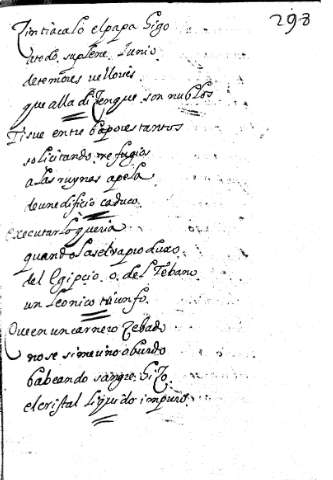 293
Tintiacalo el papa higo
turedo, suplene Junio
de temores vellores
que alla dizen que son nublos
Tisve entre vapores tantos
solicitando refugios
a las ruynas apela
de un edificio caduco.
executarlo queria
quando la selva produxo
del Egipcio o del Tebano
un Leonico triunfo.
Que en un carnero zebado
no se si me vino o burdo
babeando sangre hizo
el cristal liquido impuro.